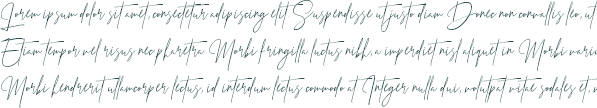 Lorem ipsum dolor sit amet, consectetur adipiscing elit. Suspendisse ut justo diam. Donec non convallis leo, ut
Etiam tempor vel risus nec pharetra. Morbi fringilla luctus nibh, a imperdiet nisl aliquet in. Morbi variu
Morbi hendrerit ullamcorper lectus, id interdum lectus commodo at. Integer nulla dui, volutpat vitae sodales et, v